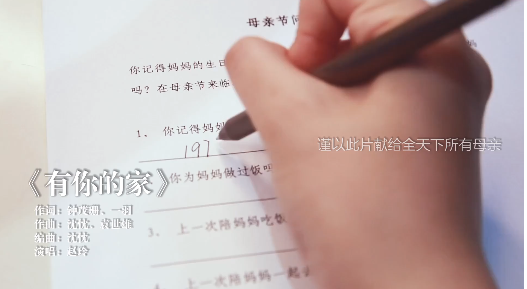 母亲节问
你记得妈妈的生日
吗？在母亲节来临
1、 你记得妈妈
197
你为妈妈做过饭吗
3、 上一次陪妈妈吃饭
4、 上一次陪妈妈一起去
谨以此片献给全天下所有母亲
《有你的家》
作词：钟茂珊、一羽
作曲：沈忱、袁世雄
编曲：沈忱
演唱：赵玲